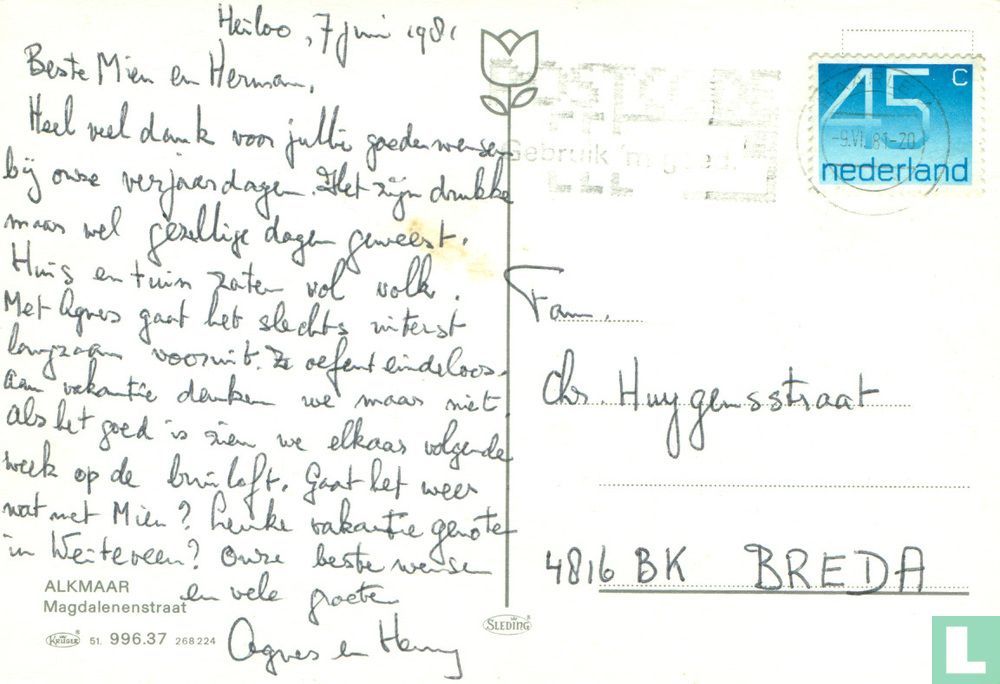 Heiloo, 7 juni 1981
Beste Mien en Herman,
Heel veel dank voor jullie goede wensen
bij onze verjaardagen. Het zijn drukke
maar wel gezellige dagen geweest.
Huis en tuin zaten vol volk.
Met Agnes gaat het slechts uiterst
langzaam vooruit. Ze oefent eindeloos.
Aan vakantie denken we maar niet.
Als het goed is zien we elkaar volgende
week op de bruiloft. Gaat het weer
wat met Mien? Leuke vakantie genoten
in Weiteveen? Onze beste wensen
en vele groeten
Agnes en Henny
ALKMAAR
Magdalenenstraat
KRÜGER 51. 996.37 268224
SLEDING
Gebruik 'm goed.
-9.VI.81-20
45 c
nederland
Fam.
Chr. Huygensstraat
4816 BK BREDA
L